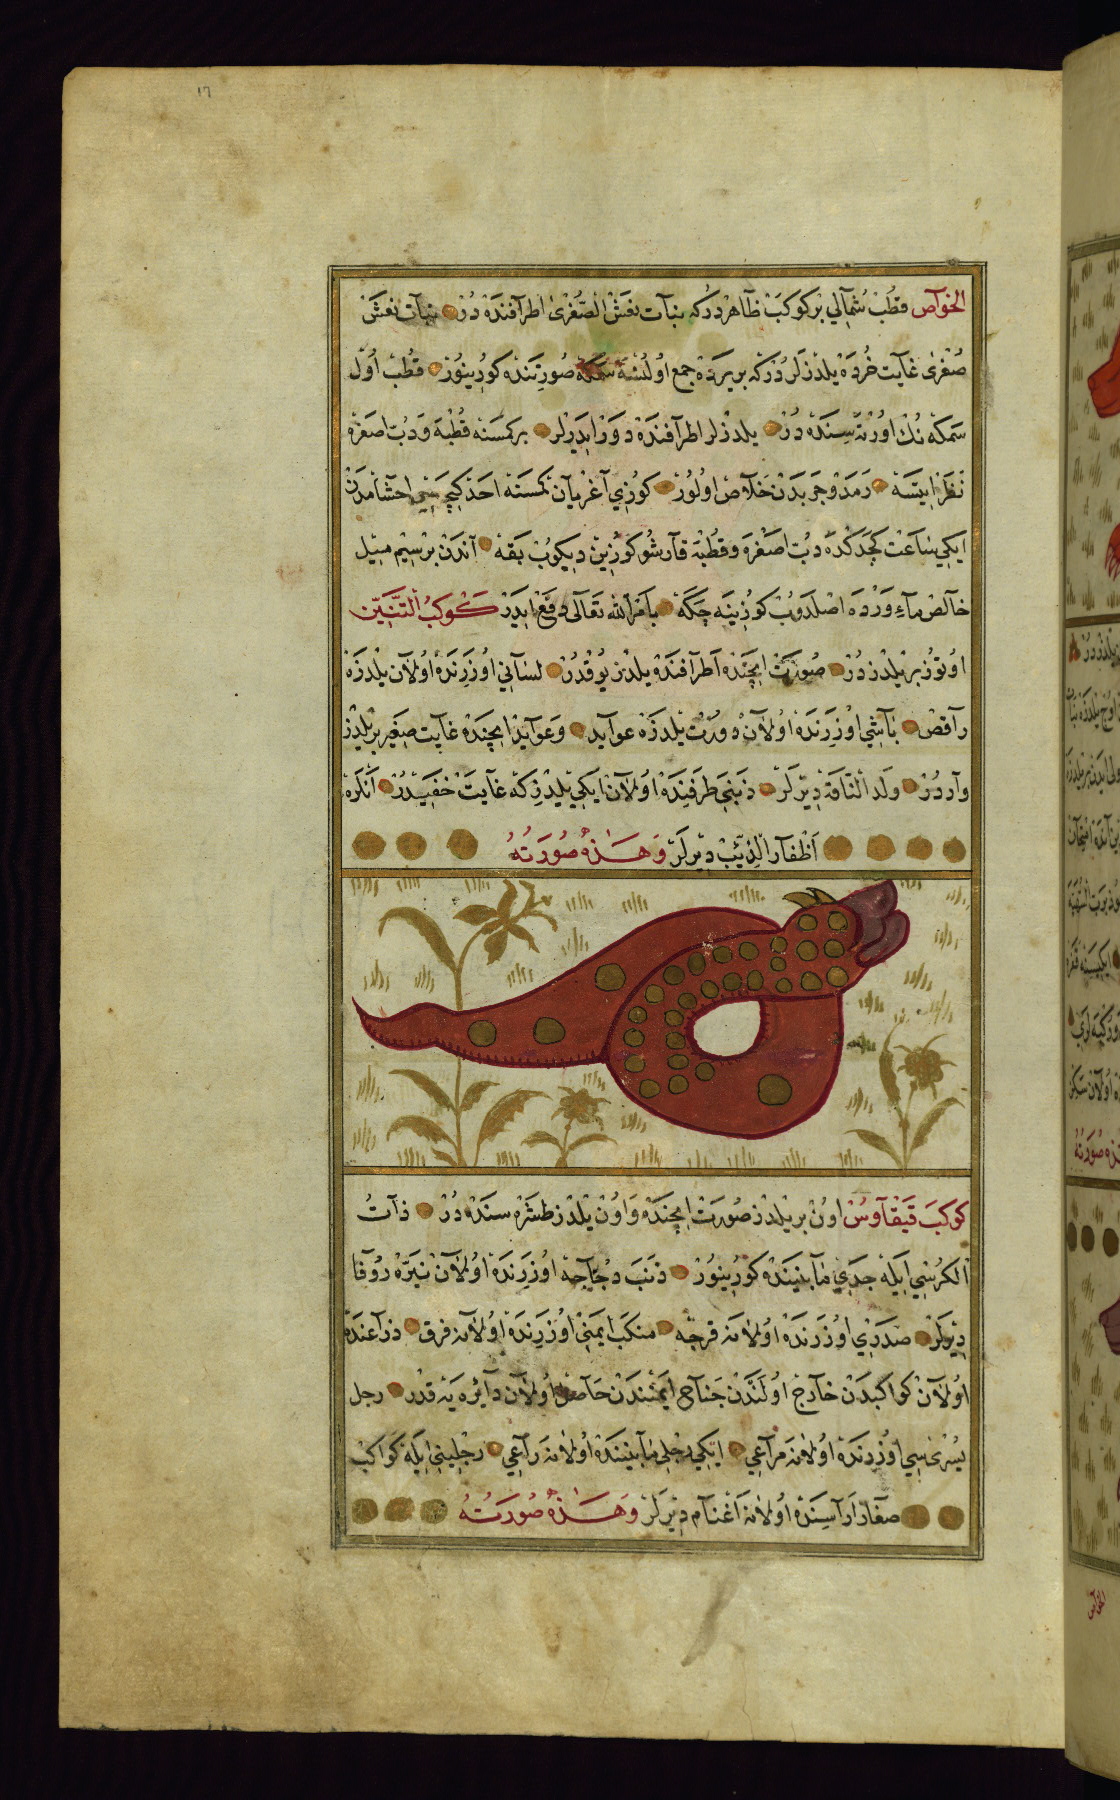 ١٦
الخوآص قطب شمآلي بر كوكب ظآهردركه بنآت نعش الصّغرى اطرآفنده در بنآت نعش
صغرى غآيت خرده يلدزلردركه بر يرده جمع اولنسه سمكه صورتنده كورينور قطب اول
سمكه نك اورته سنده در يلدزلر اطرآفنده دور ايدرلر بر كمسنه قطبه و دب اصغره
نظر ايتسه رمد و جربدن خلآص اولور كوزي آغريآن كمسنه احد كيجه سي احشآمدن
ايكي ساعت كجدكده دب اصغره و قطبه قآرشو كوزين ديكوب بقه آندن بر سيم ميل
خآلص مآء ورده اصلدوب كوزينه چكه بامر الله تعآلى دفع ايدر كوكب التّنّين
اوتوز بر يلدزدر صورت ايچنده اطرآفنده يلدز يوقدر لسآني اوزرنده اولآن يلدزه
رآقص بآشي اوزرنده اولآن دورت يلدزه عوآيد و عوآيد ايچنده غآيت صغير بر يلدز
وآردر ولد النّاقة ديرلر ذنبي طرفنده اولآن ايكي يلدز كه غآيت خفيدر انلره
اظفآر الذّئب ديرلر وهذه صورته
كوكب قيقآوس اون بر يلدز صورت ايچنده و اون يلدز طشره سنده در ذآت
الكرسي ايله جدي مآبيننده كورينور ذنب دجآجه اوزرنده اولآن نيّره روفا
ديرلر صدري اوزرنده اولانه قرجه منكب ايمني اوزرنده اولآنه فرق ذرآعنده
اولآن كواكبدن خآرج اولندن جنآح ايمنندن حآصل اولآن دآئره يه قدر رجل
يسريسي اوزرنده اولانه مرآعي ايكي رجلي مآبيننده اولانه رآعي رجليني ايله كواكب
صغآر ارآسنده اولانه اغنآم ديرلر وهذه صورته